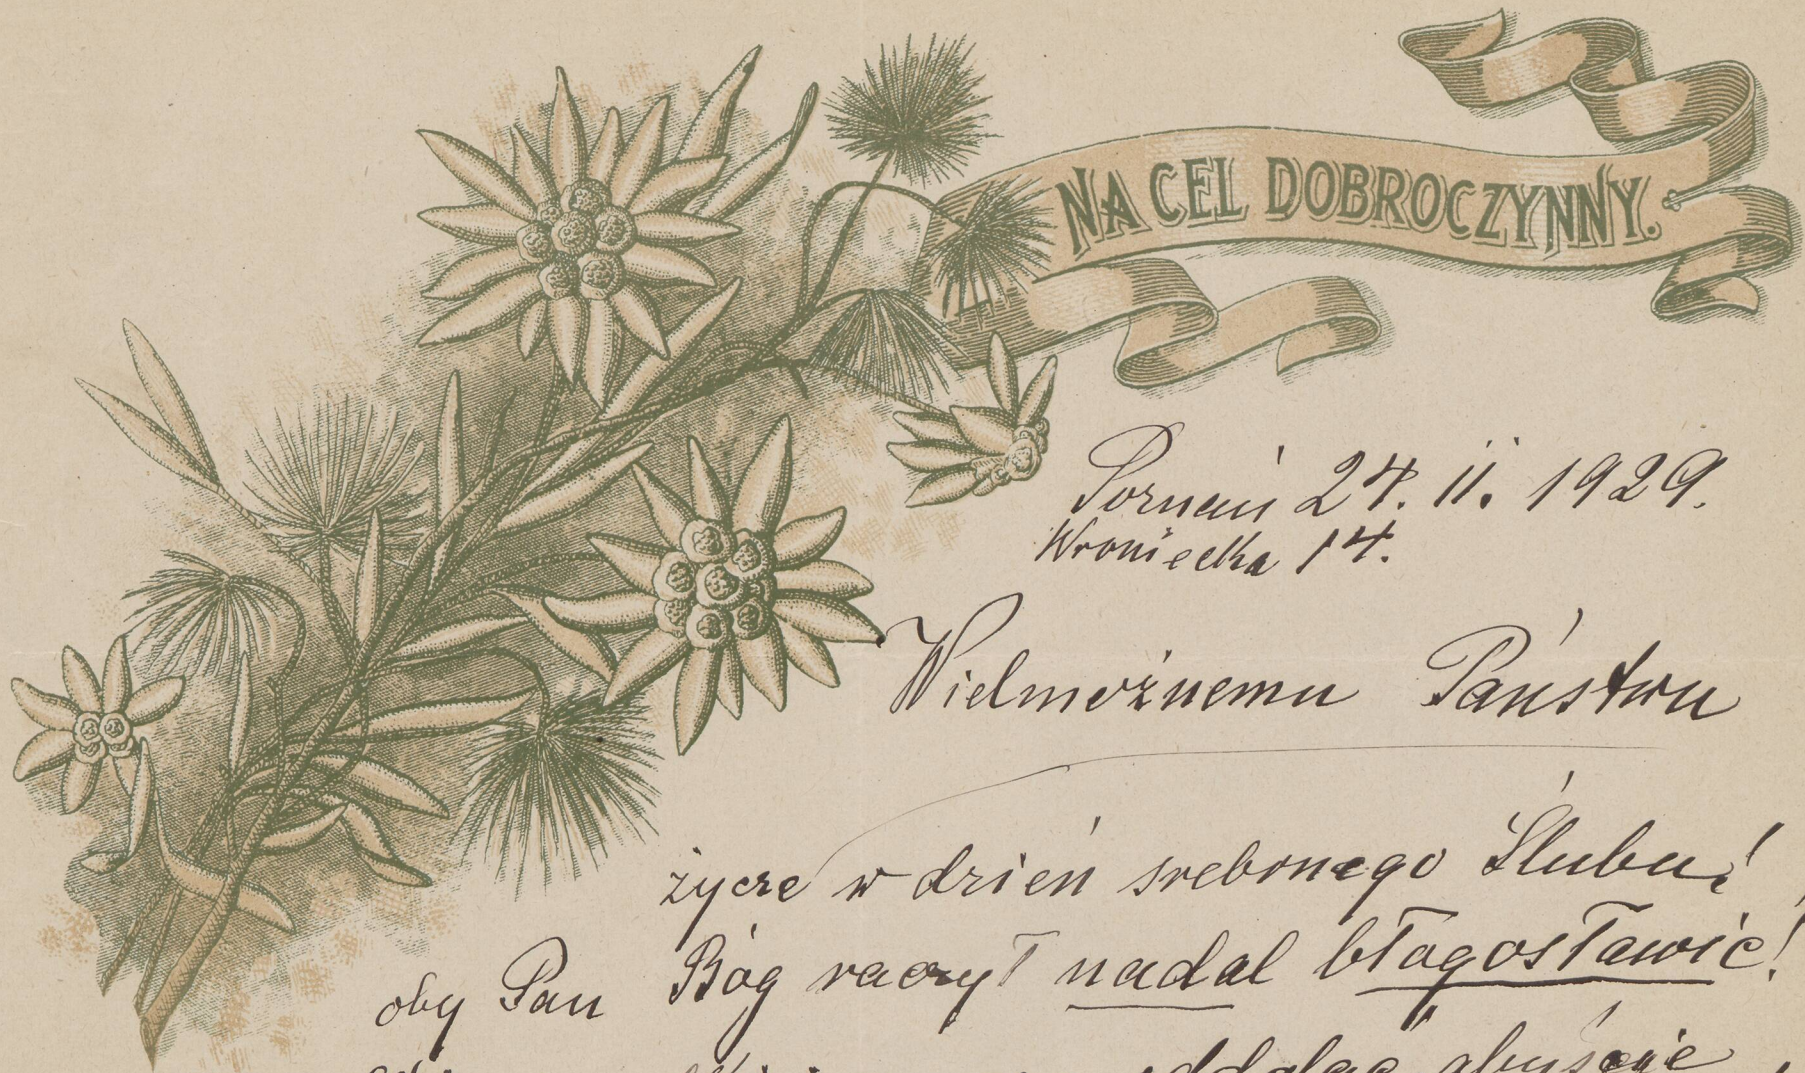 NA CEL DOBROCZYNNY.
Poznań 24. II. 1929.
Wroniecka 14.
Wielmożnemu Państwu
życzę w dzień srebrnego Ślubu!
oby Pan Bóg raczył nadal błogosławić!
abyście